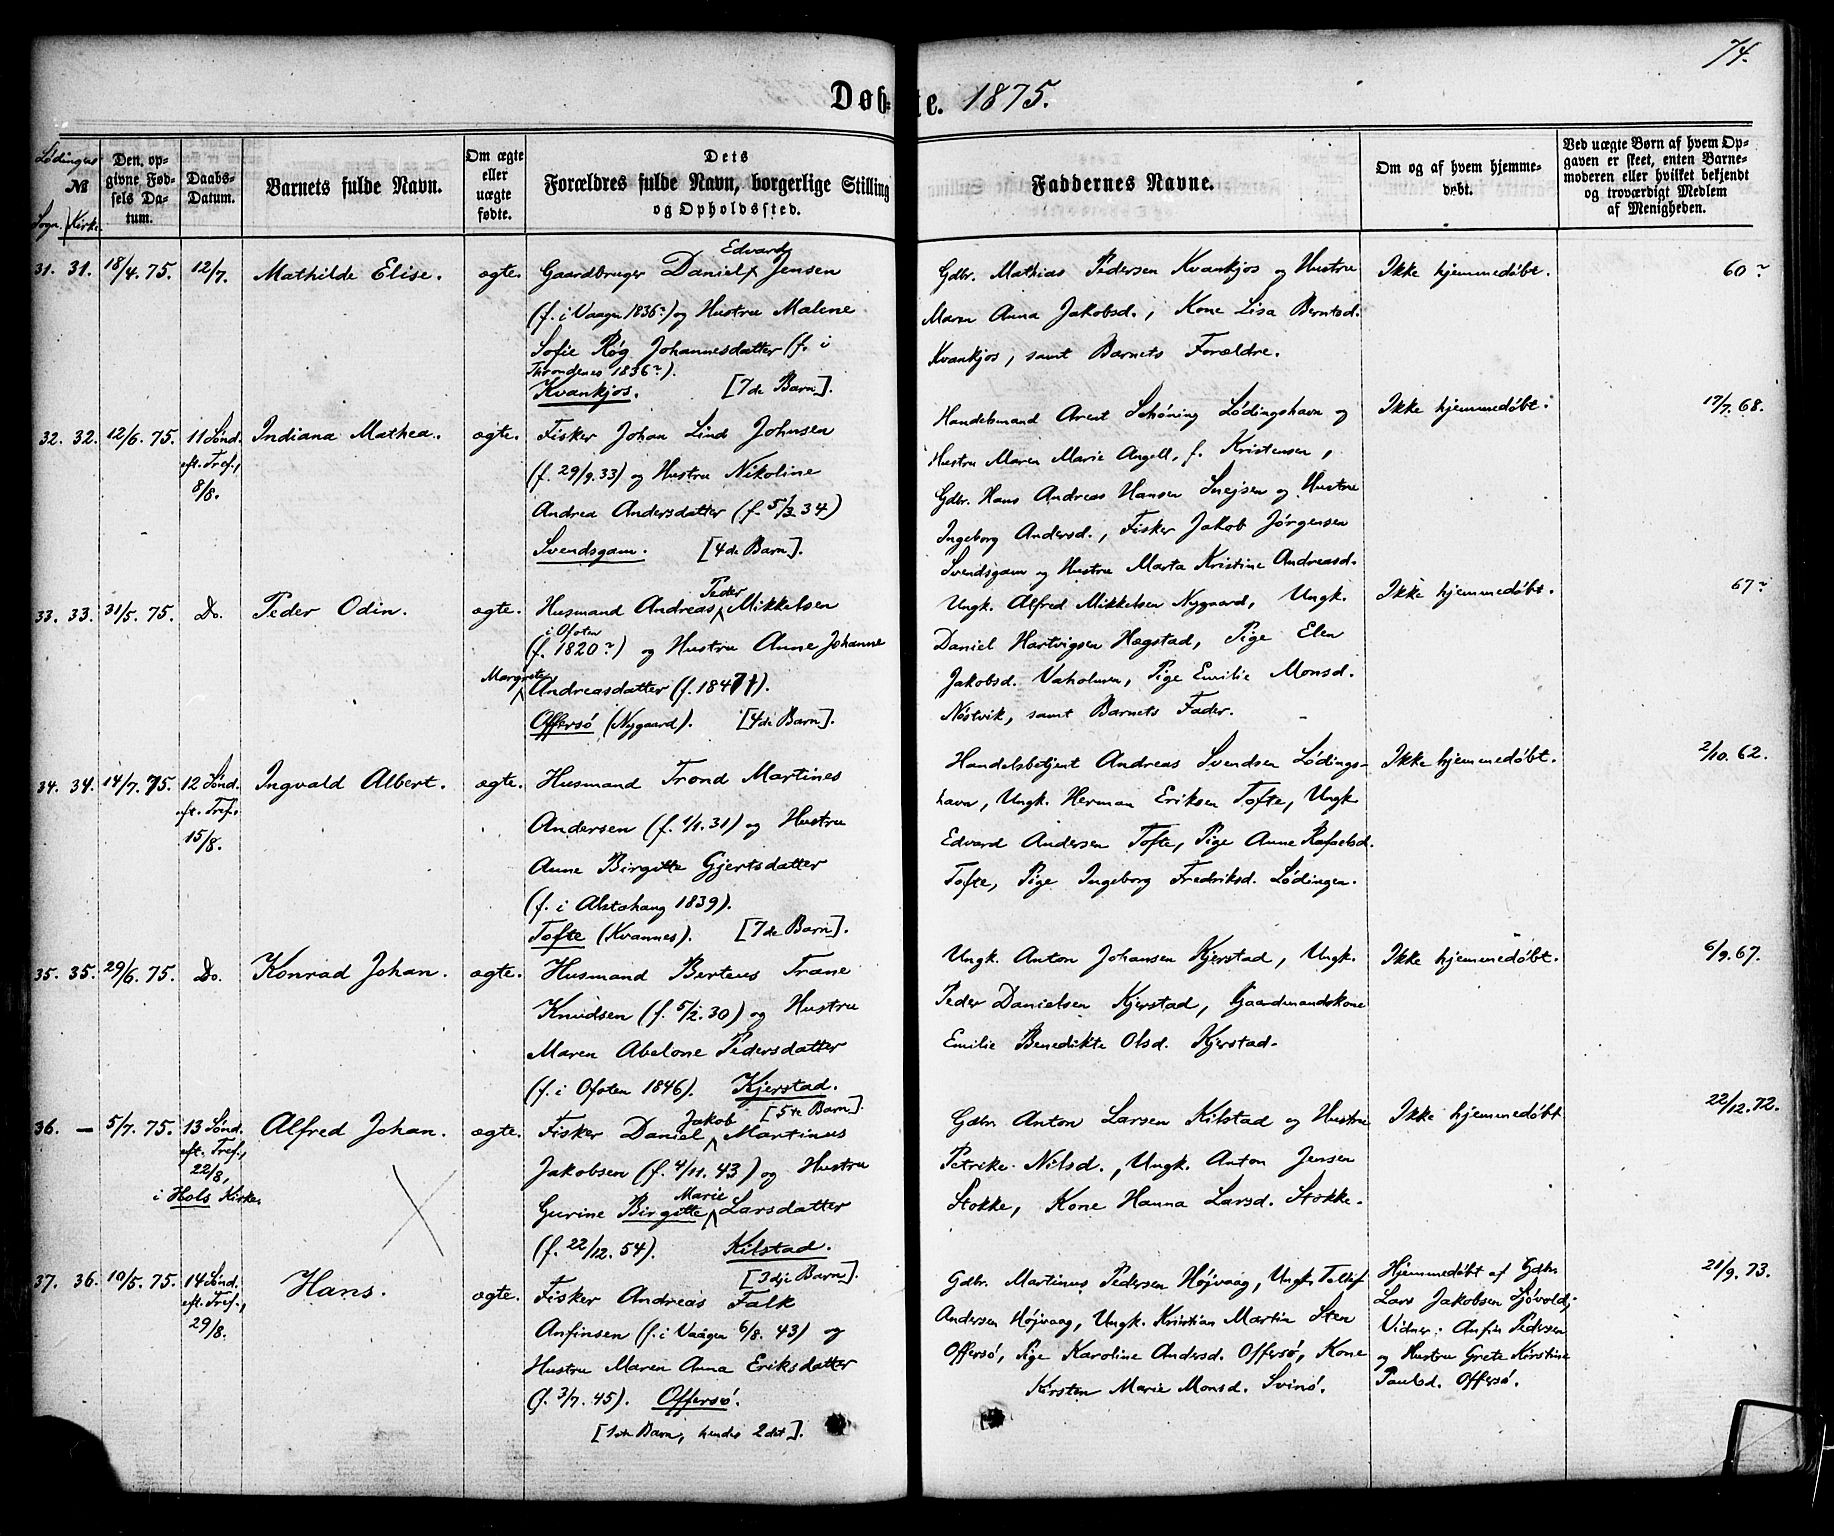 74.
Døbte. 1875.
Lødingens
№
Sogn. Kirke.
Den opgivne Fødsels Datum.
Daabs-Datum.
Barnets fulde Navn.
Om ægte eller uægte fødte.
Dets
Forældres fulde Navn, borgerlige Stilling
og Opholdssted.
Faddernes Navne.
Om og af hvem hjemmedøbt.
Ved uægte Børn af hvem Opgaven er skeet, enten Barnemoderen eller hvilket bekjendt og troværdigt Medlem af Menigheden.
31. 31. 18/4. 75. 12/7. Mathilde Elise. ægte.
Edvard
Gaardbruger Daniel Jensen
(f. i Vaagen 1836?) og Hustru Malene
Sofie Røg Johannesdatter (f. i
Throndenes 1836?).
Kvankjos. [7de Barn].
Gdbr. Mathias Pedersen Kvankjos og Hustru
Maren Anna Jakobsd., Kone Lisa Berntsd.
Kvankjos, samt Barnets Forældre.
Ikke hjemmedøbt.
60?
32. 32. 12/6. 75. 11 Sønd. eft. Tref., 8/8. Indiana Mathea. ægte.
Fisker Johan Lind Johnsen
(f. 29/9. 33) og Hustru Nikoline
Andrea Andersdatter (f. 5/3 34)
Svendsgam. [4de Barn].
Handelsmand Arent Schøning Lødingshavn og
Hustru Maren Marie Angell, f. Kristensen,
Gdbr. Hans Andreas Hansen Snejsen og Hustru
Ingeborg Andersd., Fisker Jakob Jørgensen
Svendsgam og Hustru Marta Kristine Andreasd.
Ikke hjemmedøbt.
17/7. 68.
33. 33. 31/5. 75. Do. Peder Odin. ægte.
Peder
Husmand Andreas Mikkelsen
i Ofoten
(f. 1820?) og Hustru Anne Johanne
Margrete Andreasdatter (f. 1847).
Offersø (Nygaard). [4de Barn].
Ungk. Alfred Mikkelsen Nygaard, Ungk.
Daniel Hartvigsen Hægstad, Pige Elen
Jakobsd. Vaholmen, Pige Emilie Monsd.
Nøstvik, samt Barnets Fader.
Ikke hjemmedøbt.
67?
34. 34. 14/7. 75. 12 Sønd. eft. Tref. 15/8. Ingvald Albert. ægte.
Husmand Trond Martines
Andersen (f. 1/1. 31) og Hustru
Anne Birgitte Gjertsdatter
(f. i Alstahaug 1839).
Tofte (Kvannes). [7de Barn].
Handelsbetjent Andreas Svendsen Lødings-
havn, Ungk. Herman Eriksen Tofte, Ungk
Edvard Andersen Tofte, Pige Anne Rafaelsd.
Tofte, Pige Ingeborg Fredriksd. Lødingen.
Ikke hjemmedøbt.
2/10. 62.
35. 35. 29/6. 75. Do. Konrad Johan. ægte.
Husmand Berteus Træne
Knudsen (f. 5/2. 30) og Hustru
Maren Abelone Pedersdatter
(f. i Ofoten 1846). Kjerstad.
[5te Barn].
Ungk. Anton Johansen Kjerstad, Ungk.
Peder Danielsen Kjerstad, Gaardmandskone
Emilie Benedikte Olsd. Kjerstad.
Ikke hjemmedøbt.
6/9. 67.
36. – 5/7. 75. 13 Sønd. eft. Tref., 22/8, i Hols Kirke. Alfred Johan. ægte.
Jakob
Fisker Daniel Martinus
Jakobsen (f. 4/11. 43) og Hustru
Marie
Gurine Birgitte Larsdatter
(f. 22/12. 54). Kilstad.
[3dje Barn].
Gdbr. Anton Larsen Kilstad og Hustru
Petrike Nilsd., Ungk. Anton Jensen
Stokke, Kone Hanna Larsd. Stokke.
Ikke hjemmedøbt
22/12. 72.
37. 36. 10/5. 75. 14 Sønd. eft. Tref., 29/8. Hans. ægte.
Fisker Andreas Falk
Anfinsen (f. i Vaagen 6/8. 43) og
Hustru Maren Anna Eriksdatter
(f. 3/7. 45). Offersø.
[1ste Barn, hendes 2det].
Gdbr. Martinus Pedersen Højvaag, Ungk. Tollef
Andersen Højvaag, Ungk. Kristian Martin Sten
Offersø, Pige Karoline Andersd. Offersø, Kone
Kirsten Marie Monsd. Svinø.
Hjemmedøbt af Gdbr.
Lars Jakobsen Sjøvold;
Vidner: Anfin Pedersen
og Hustru Grete Kirstine
Paulsd. Offersø.
21/9. 73.